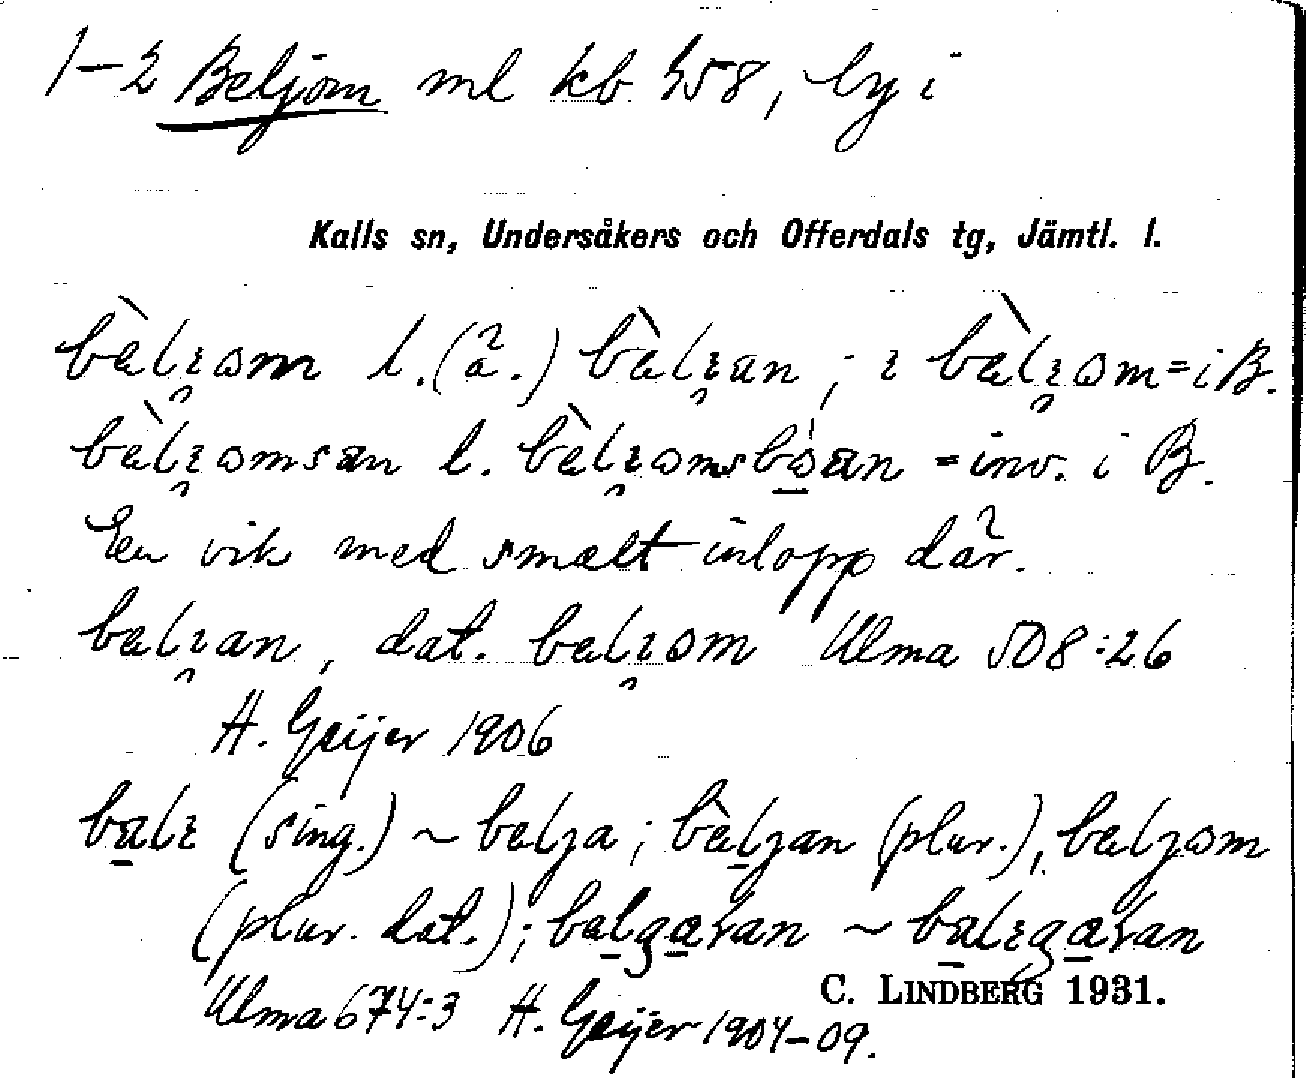 1–2 Beljom ml kb 458, by i
Kalls sn, Undersåkers och Offerdals tg, Jämtl. l.
bælɩom l. (ä.) bælɩan ; ɩ bælɩom = i B.
bælɩomsæn l. bælɩomsboæn = inv. i B.
En vik med smalt inlopp där.
bælɩan, dat. bælɩom Ulma 508:26
H. Geijer 1906
balɩ (sing.) ~ bælja ; bæljan (plur.), bæljom
(plur. dat.) ; balgaɽan ~ balɩgaɽan
Ulma 674:3 H. Geijer 1904–09.
C. LINDBERG 1931.